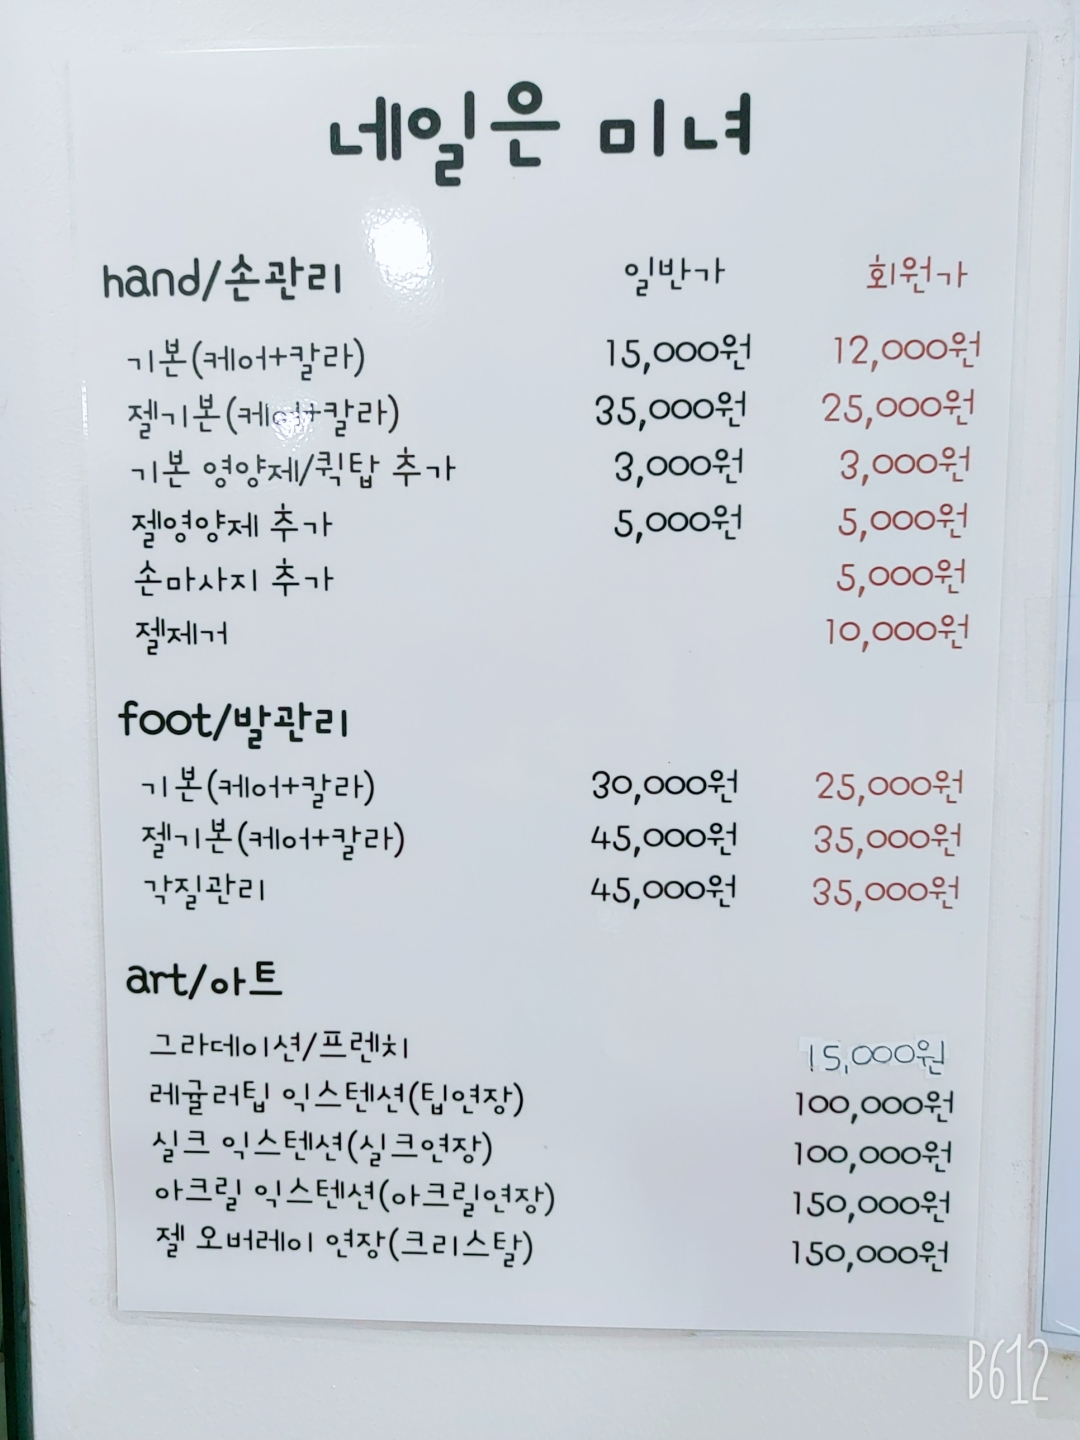 네일은 미녀
hand/손관리 일반가 회원가
기본(케어+칼라) 15,000원 12,000원
젤기본(케어+칼라) 35,000원 25,000원
기본 영양제/퀵탑 추가 3,000원 3,000원
젤영양제 추가 5,000원 5,000원
손마사지 추가 5,000원
젤제거 10,000원
foot/발관리
기본(케어+칼라) 30,000원 25,000원
젤기본(케어+칼라) 45,000원 35,000원
각질관리 45,000원 35,000원
art/아트
그라데이션/프렌치 15,000원
레귤러팁 익스텐션(팁연장) 100,000원
실크 익스텐션(실크연장) 100,000원
아크릴 익스텐션(아크릴연장) 150,000원
젤 오버레이 연장(크리스탈) 150,000원
B612